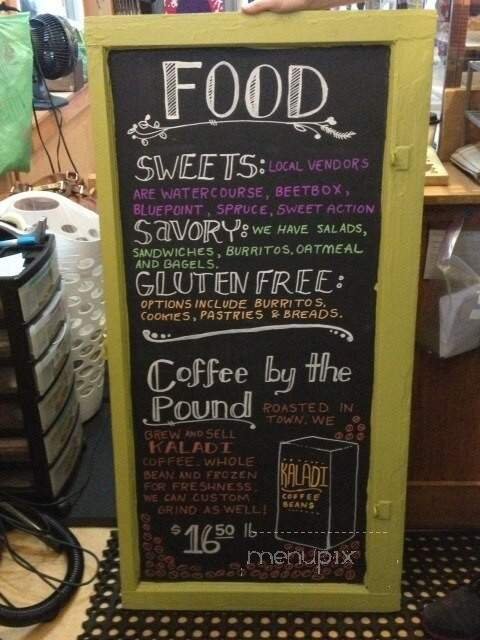 FOOD
SWEETS: LOCAL VENDORS
ARE WATERCOURSE, BEETBOX,
BLUEPOINT, SPRUCE, SWEET ACTION
SAVORY: WE HAVE SALADS,
SANDWICHES, BURRITOS, OATMEAL
AND BAGELS.
GLUTEN FREE:
OPTIONS INCLUDE BURRITOS,
COOKIES, PASTRIES & BREADS.
Coffee by the
Pound ROASTED IN
TOWN. WE
BREW AND SELL
KALADI
COFFEE. WHOLE
BEAN AND FROZEN
FOR FRESHNESS.
WE CAN CUSTOM
GRIND AS WELL!
$16.50 lb
KALADI
COFFEE
BEANS
menupix